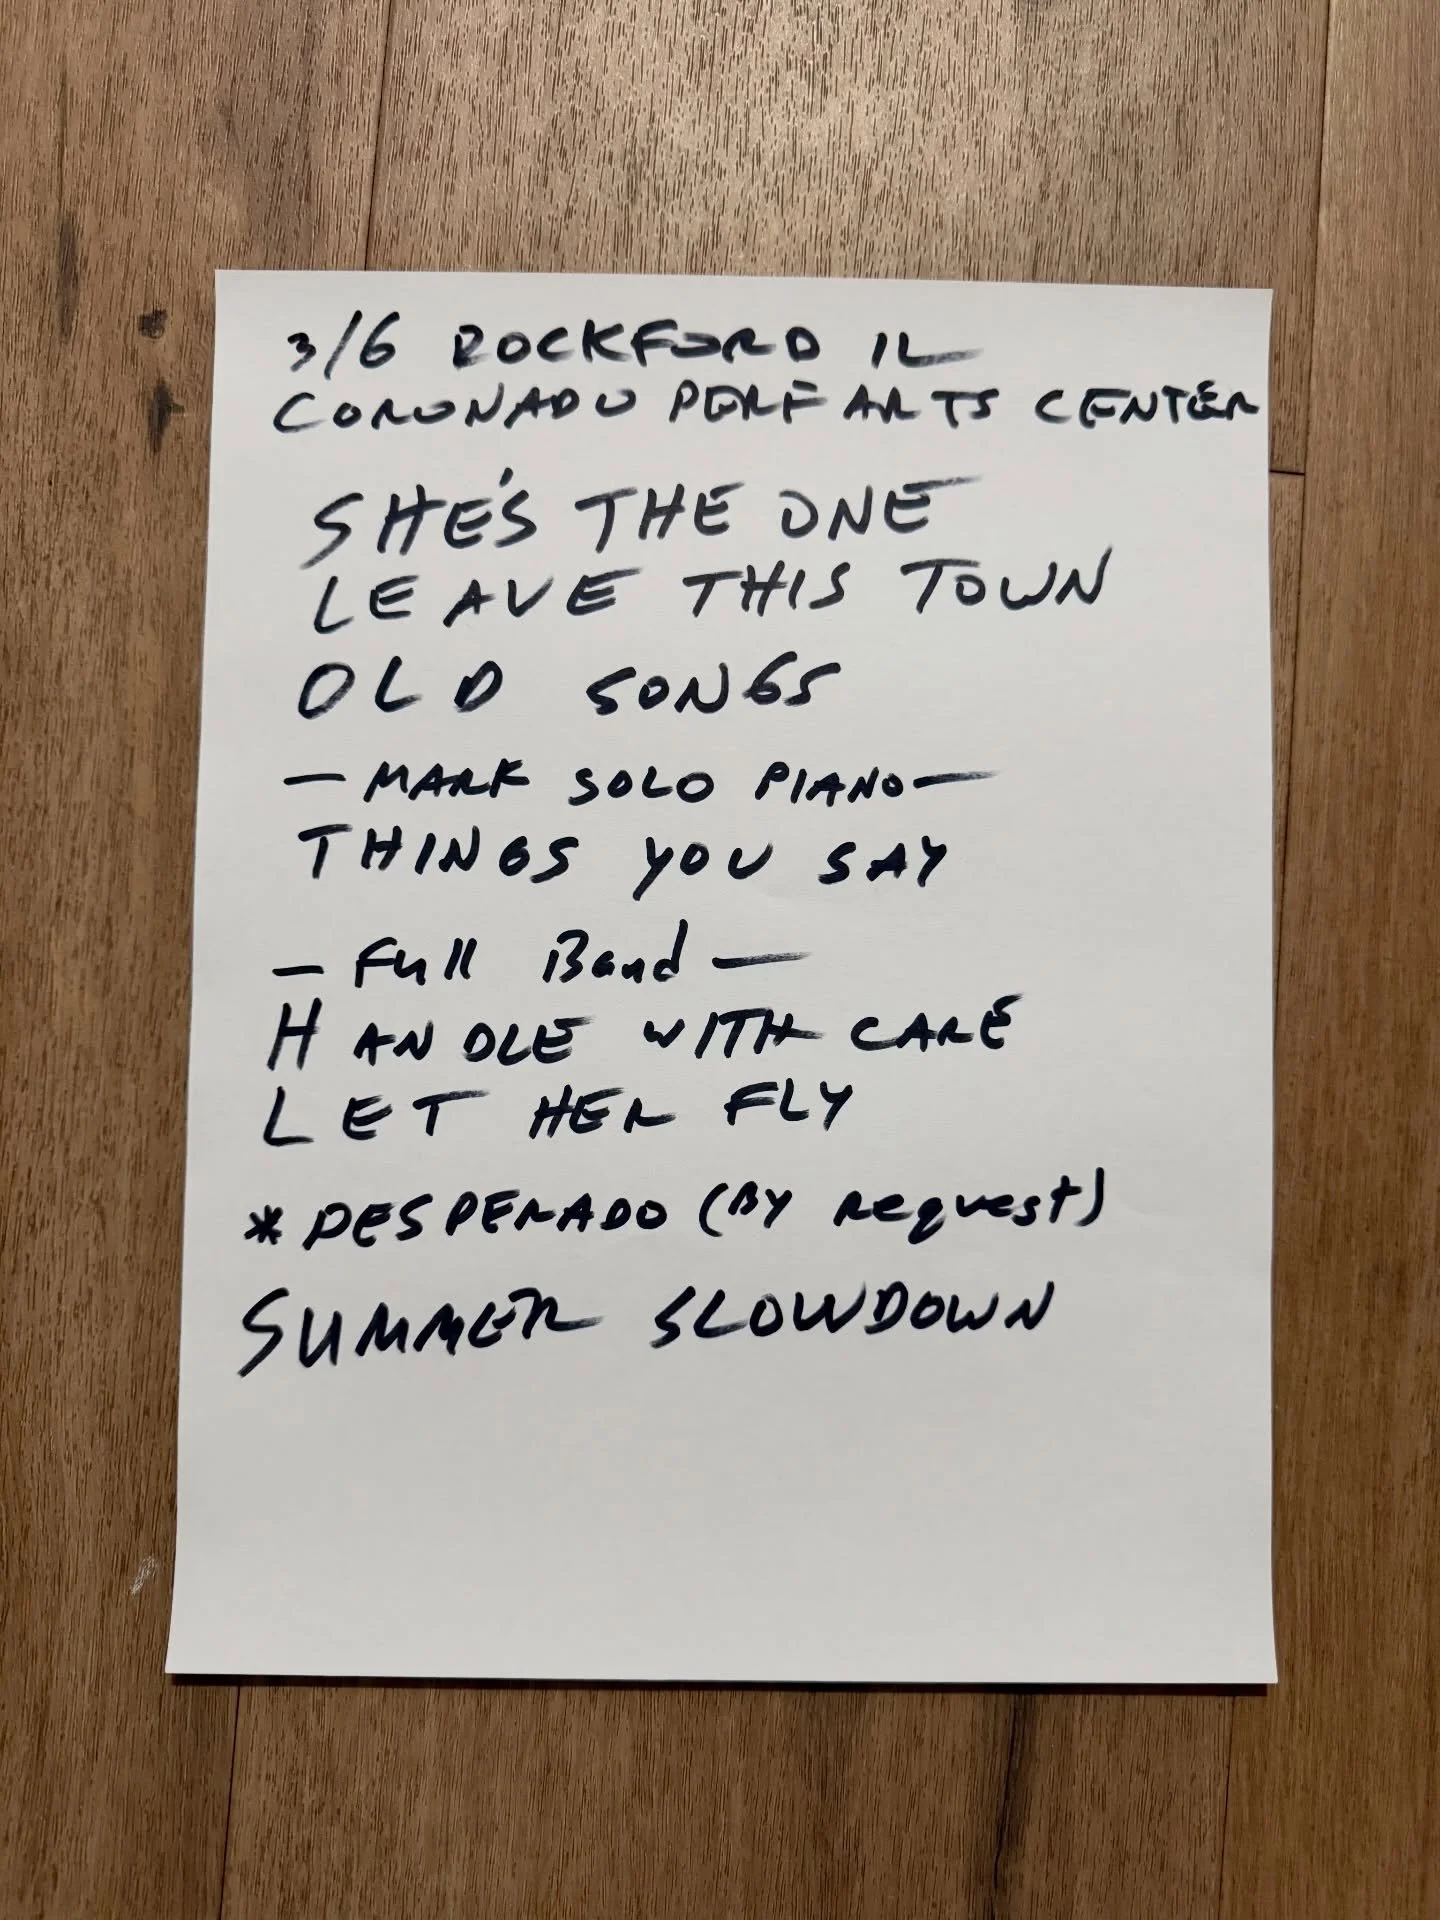 3/6 ROCKFORD IL
CORONADO PERF ARTS CENTER
SHE'S THE ONE
LEAVE THIS TOWN
OLD SONGS
— MARK SOLO PIANO —
THINGS YOU SAY
— Full Band —
HANDLE WITH CARE
LET HER FLY
* DESPERADO (BY Request)
SUMMER SLOWDOWN